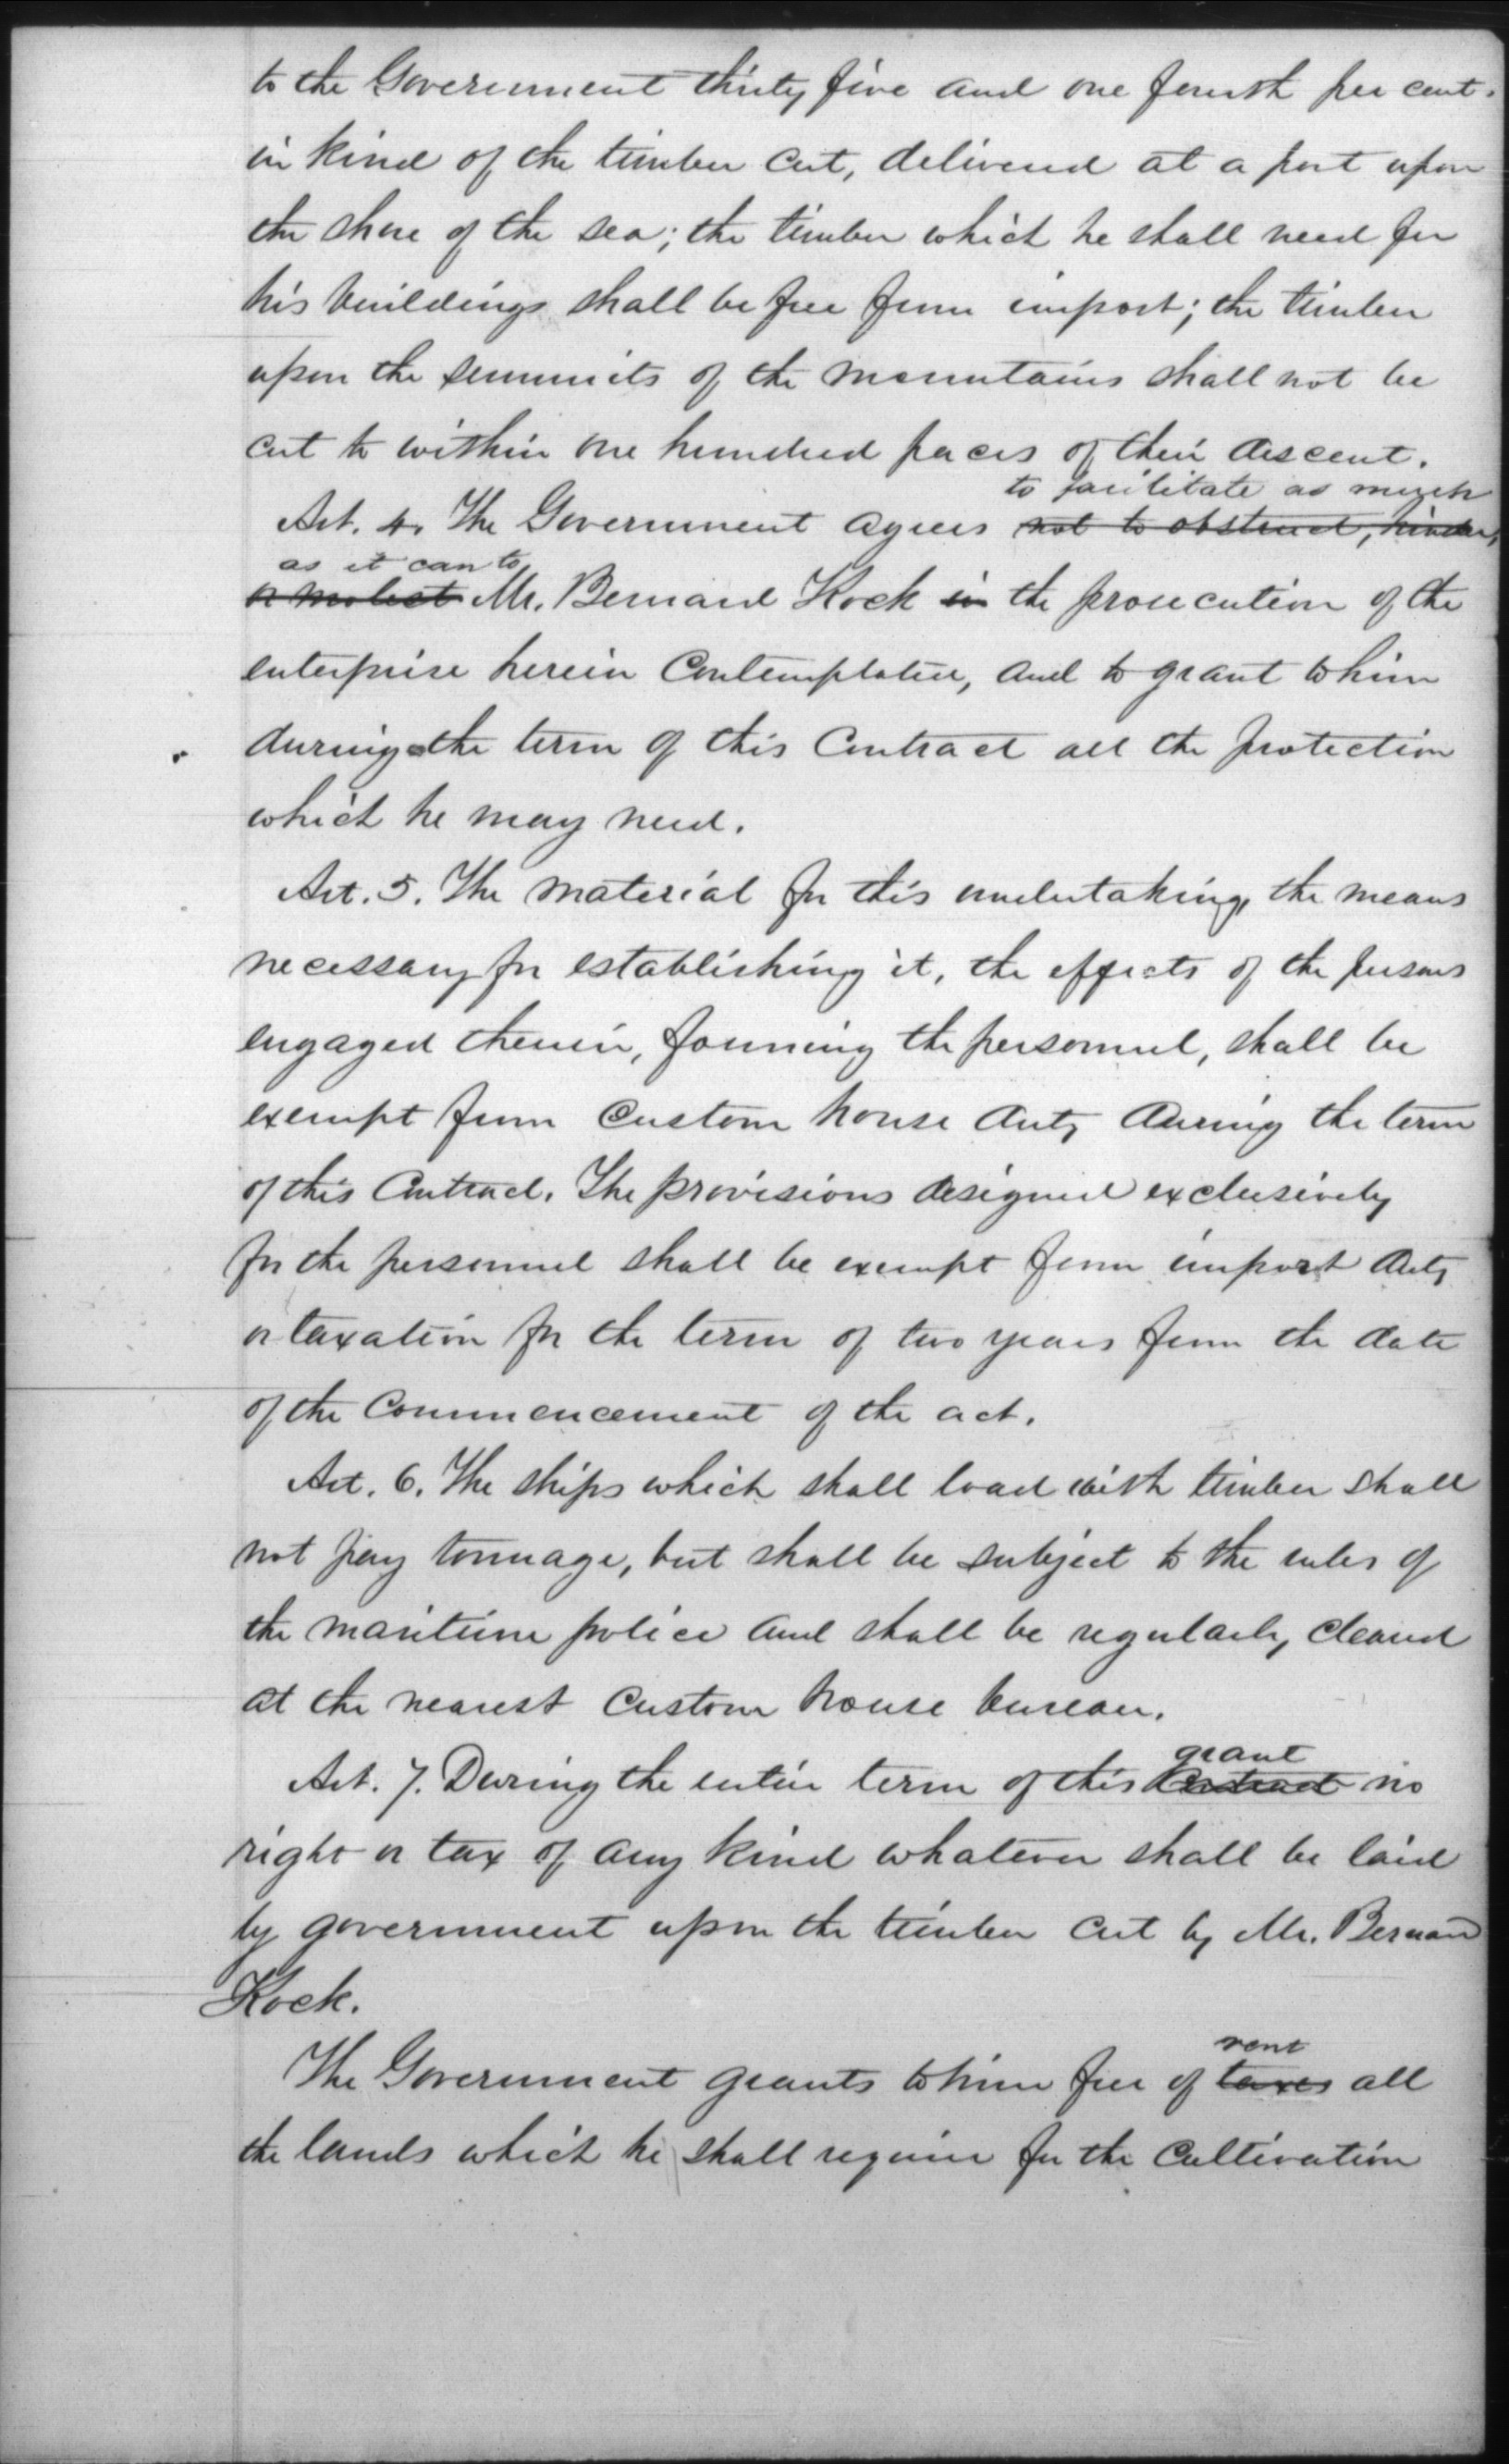 to the Government thirty five and one fourth per cent.
in kind of the timber cut, delivered at a port upon
the shore of the sea; the timber which he shall need for
his buildings shall be free from impost; the timber
upon the summits of the mountains shall not be
cut to within one hundred paces of their descent.
to facilitate as much
Art. 4. The Government agrees not to obstruct, hinder,
as it can to
or molest Mr. Bernard Kock in the prosecution of the
enterprise herein Contemplated, and to grant to him
during the term of this Contract all the protection
which he may need.
Art. 5. The material for this undertaking, the means
necessary for establishing it, the effects of the persons
engaged therein, forming the personnel, shall be
exempt from Custom house duty during the term
of this Contract. The provisions designed exclusively
for the personnel shall be exempt from import duty
or taxation for the term of two years from the date
of the Commencement of the act.
Art. 6. The ships which shall load with timber shall
not pay tonnage, but shall be subject to the rules of
the maritime police and shall be regularly cleared
at the nearest Custom house bureau.
grant
Art. 7. During the entire term of this Contract no
right or tax of any kind whatever shall be laid
by government upon the timber cut by Mr. Bernard
Kock.
rent
The Government grants to him free of taxes all
the lands which he shall require for the Cultivation